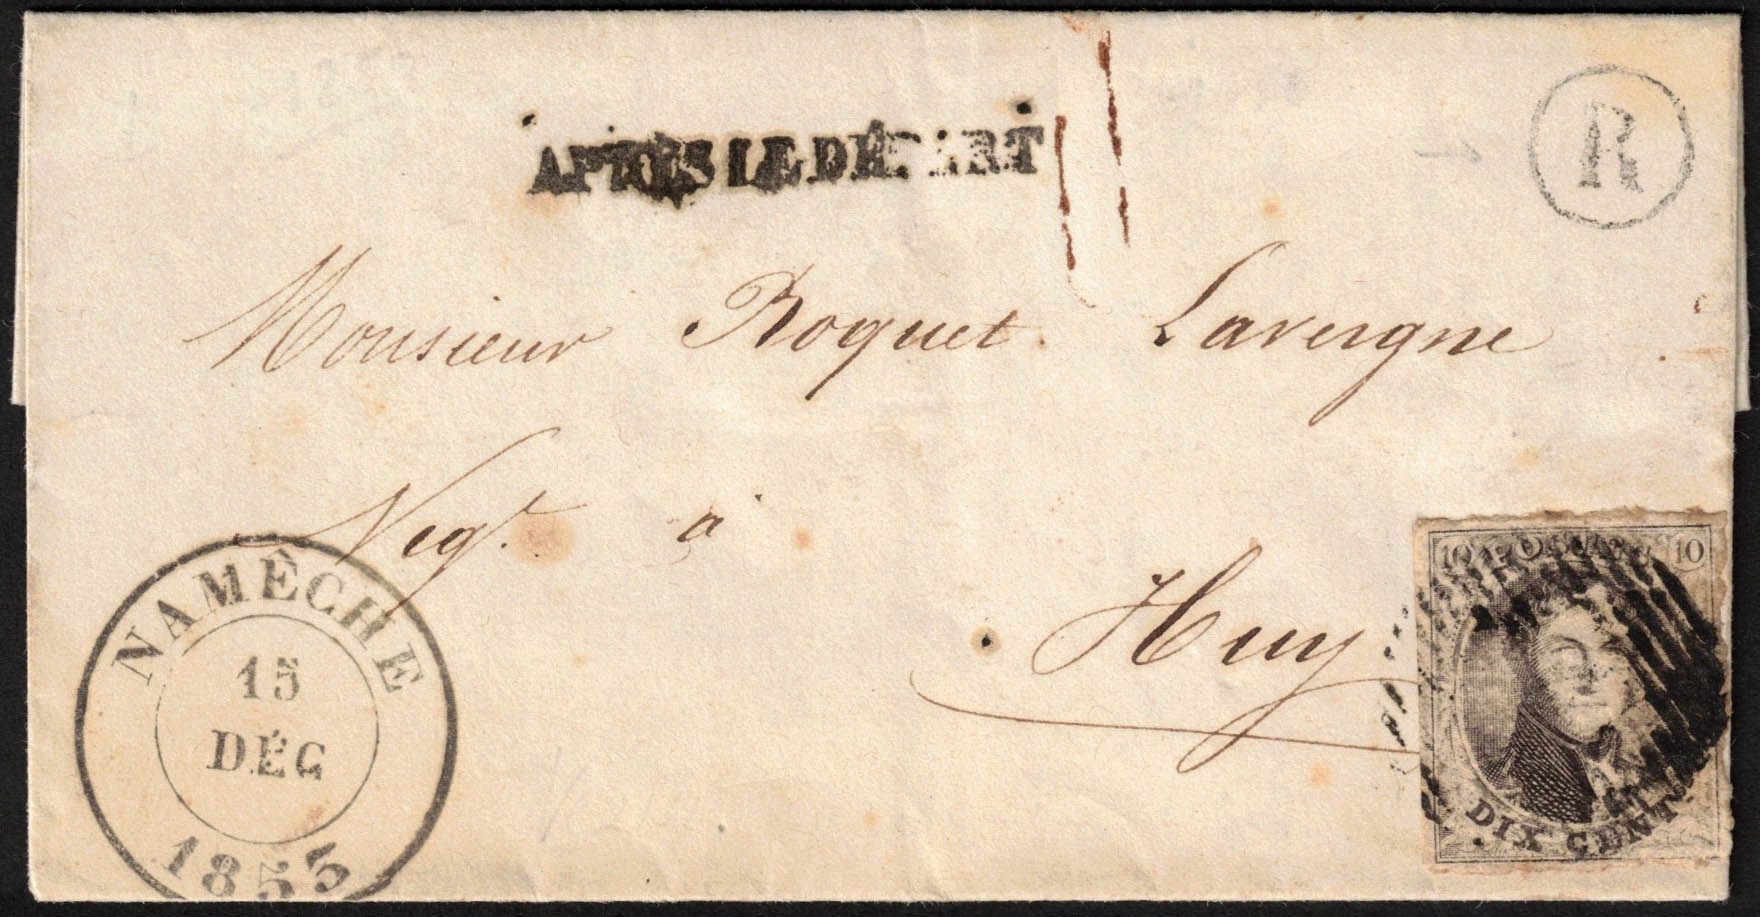 APRÈS LE DÉPART
R
1
Monsieur Roquet Lavergne
Negt à
Huy
NAMÈCHE
15
DÉC
1853
10 POSTES 10
DIX CENTS